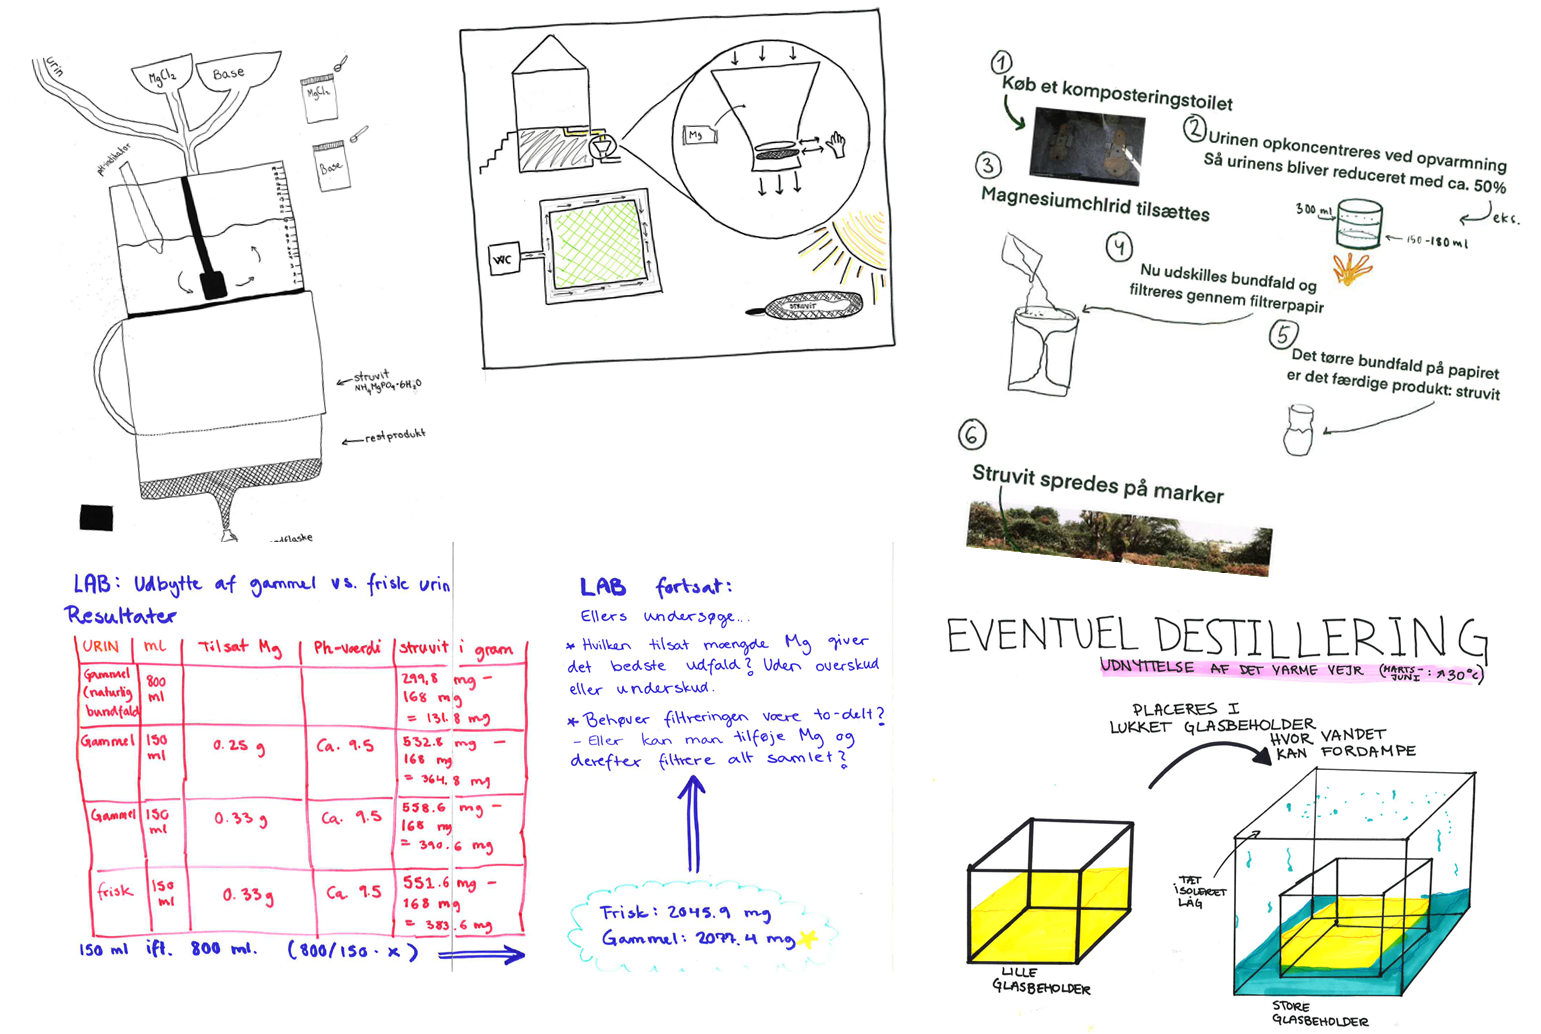 urin
MgCl2
Base
MgCl2
Base
pH indikator
struvit
NH4MgPO4·6H2O
restprodukt
ndflaske
Mg
WC
STRUVIT
1
Køb et komposteringstoilet
2
Urinen opkoncentreres ved opvarmning
Så urinens bliver reduceret med ca. 50%
eks.
300 ml
150-180 ml
3
Magnesiumchlrid tilsættes
4
Nu udskilles bundfald og
filtreres gennem filtrerpapir
5
Det tørre bundfald på papiret
er det færdige produkt: struvit
6
Struvit spredes på marker
LAB: Udbytte af gammel vs. frisk urin
Resultater
URIN ml Tilsat Mg Ph-værdi struvit i gram
Gammel (naturlig bundfald 800 ml 299,8 mg - 168 mg = 131.8 mg
Gammel 150 ml 0.25 g Ca. 9.5 532.8 mg - 168 mg = 364.8 mg
Gammel 150 ml 0.33 g Ca. 9.5 558.6 mg - 168 mg = 390.6 mg
frisk 150 ml 0.33g Ca. 9.5 551.6 mg - 168 mg = 383.6 mg
150 ml ift. 800 ml. (800/150 · x)
LAB fortsat:
Ellers undersøge...
* Hvilken tilsat mængde Mg giver
det bedste udfald? Uden overskud
eller underskud.
* Behøver filtreringen være to-delt?
- Eller kan man tilføje Mg og
derefter filtrere alt samlet?
Frisk: 2045.9 mg
Gammel: 2077.4 mg
EVENTUEL DESTILLERING
UDNYTTELSE AF DET VARME VEJR (MARTS-JUNI: ↗30°C)
PLACERES I
LUKKET GLASBEHOLDER
HVOR VANDET
KAN FORDAMPE
TÆT
ISOLERET
LÅG
LILLE
GLASBEHOLDER
STORE
GLASBEHOLDER